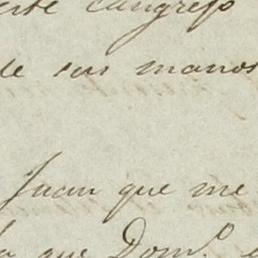 este congreso
de sus manos
Juan que me
la que Dom.º